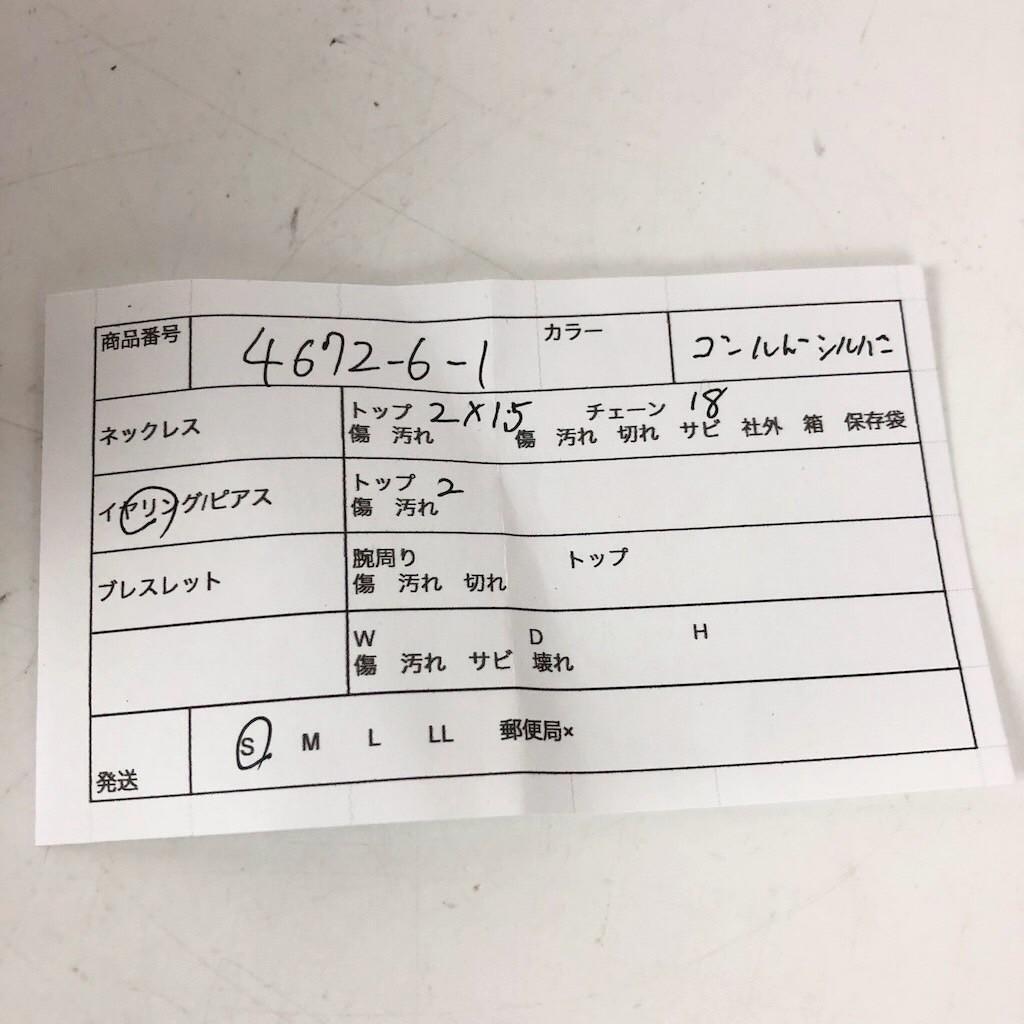 商品番号 4672-6-1 カラー
ネックレス トップ 2×1.5 チェーン 18
傷 汚れ 傷 汚れ 切れ サビ 社外 箱 保存袋
イヤリング/ピアス トップ 2
傷 汚れ
ブレスレット 腕周り トップ
傷 汚れ 切れ
W D H
傷 汚れ サビ 壊れ
発送 S M L LL 郵便局×